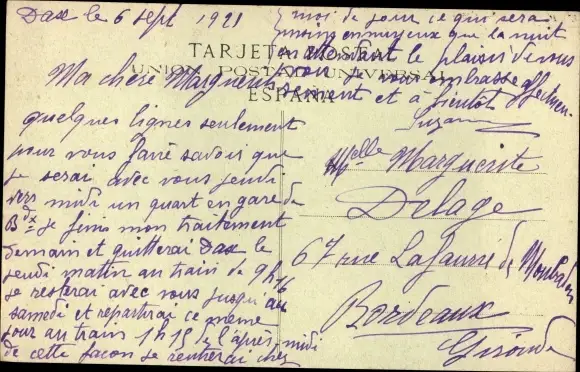 Dax le 6 sept 1921
TARJETA POSTAL
UNION POSTAL UNIVERSAL
ESPAÑA
Ma chère Marguerite
quelques lignes seulement
pour vous faire savoir que
je serai avec vous jeudi
vers midi un quart en gare de
Bdx je finis mon traitement
demain et quitterai Dax le
jeudi matin au train de 9h16
je resterai avec vous jusqu'au
samedi et repartirai ce même
jour au train 1h15 de l'après-midi
de cette façon je rentrerai chez
moi de jour ce qui sera
moins ennuyeux que la nuit
en attendant le plaisir de vous
voir je vous embrasse affectueu-
sement et à bientôt
Suzanne
Melle Marguerite
Delage
67 rue
Bordeaux
Gironde